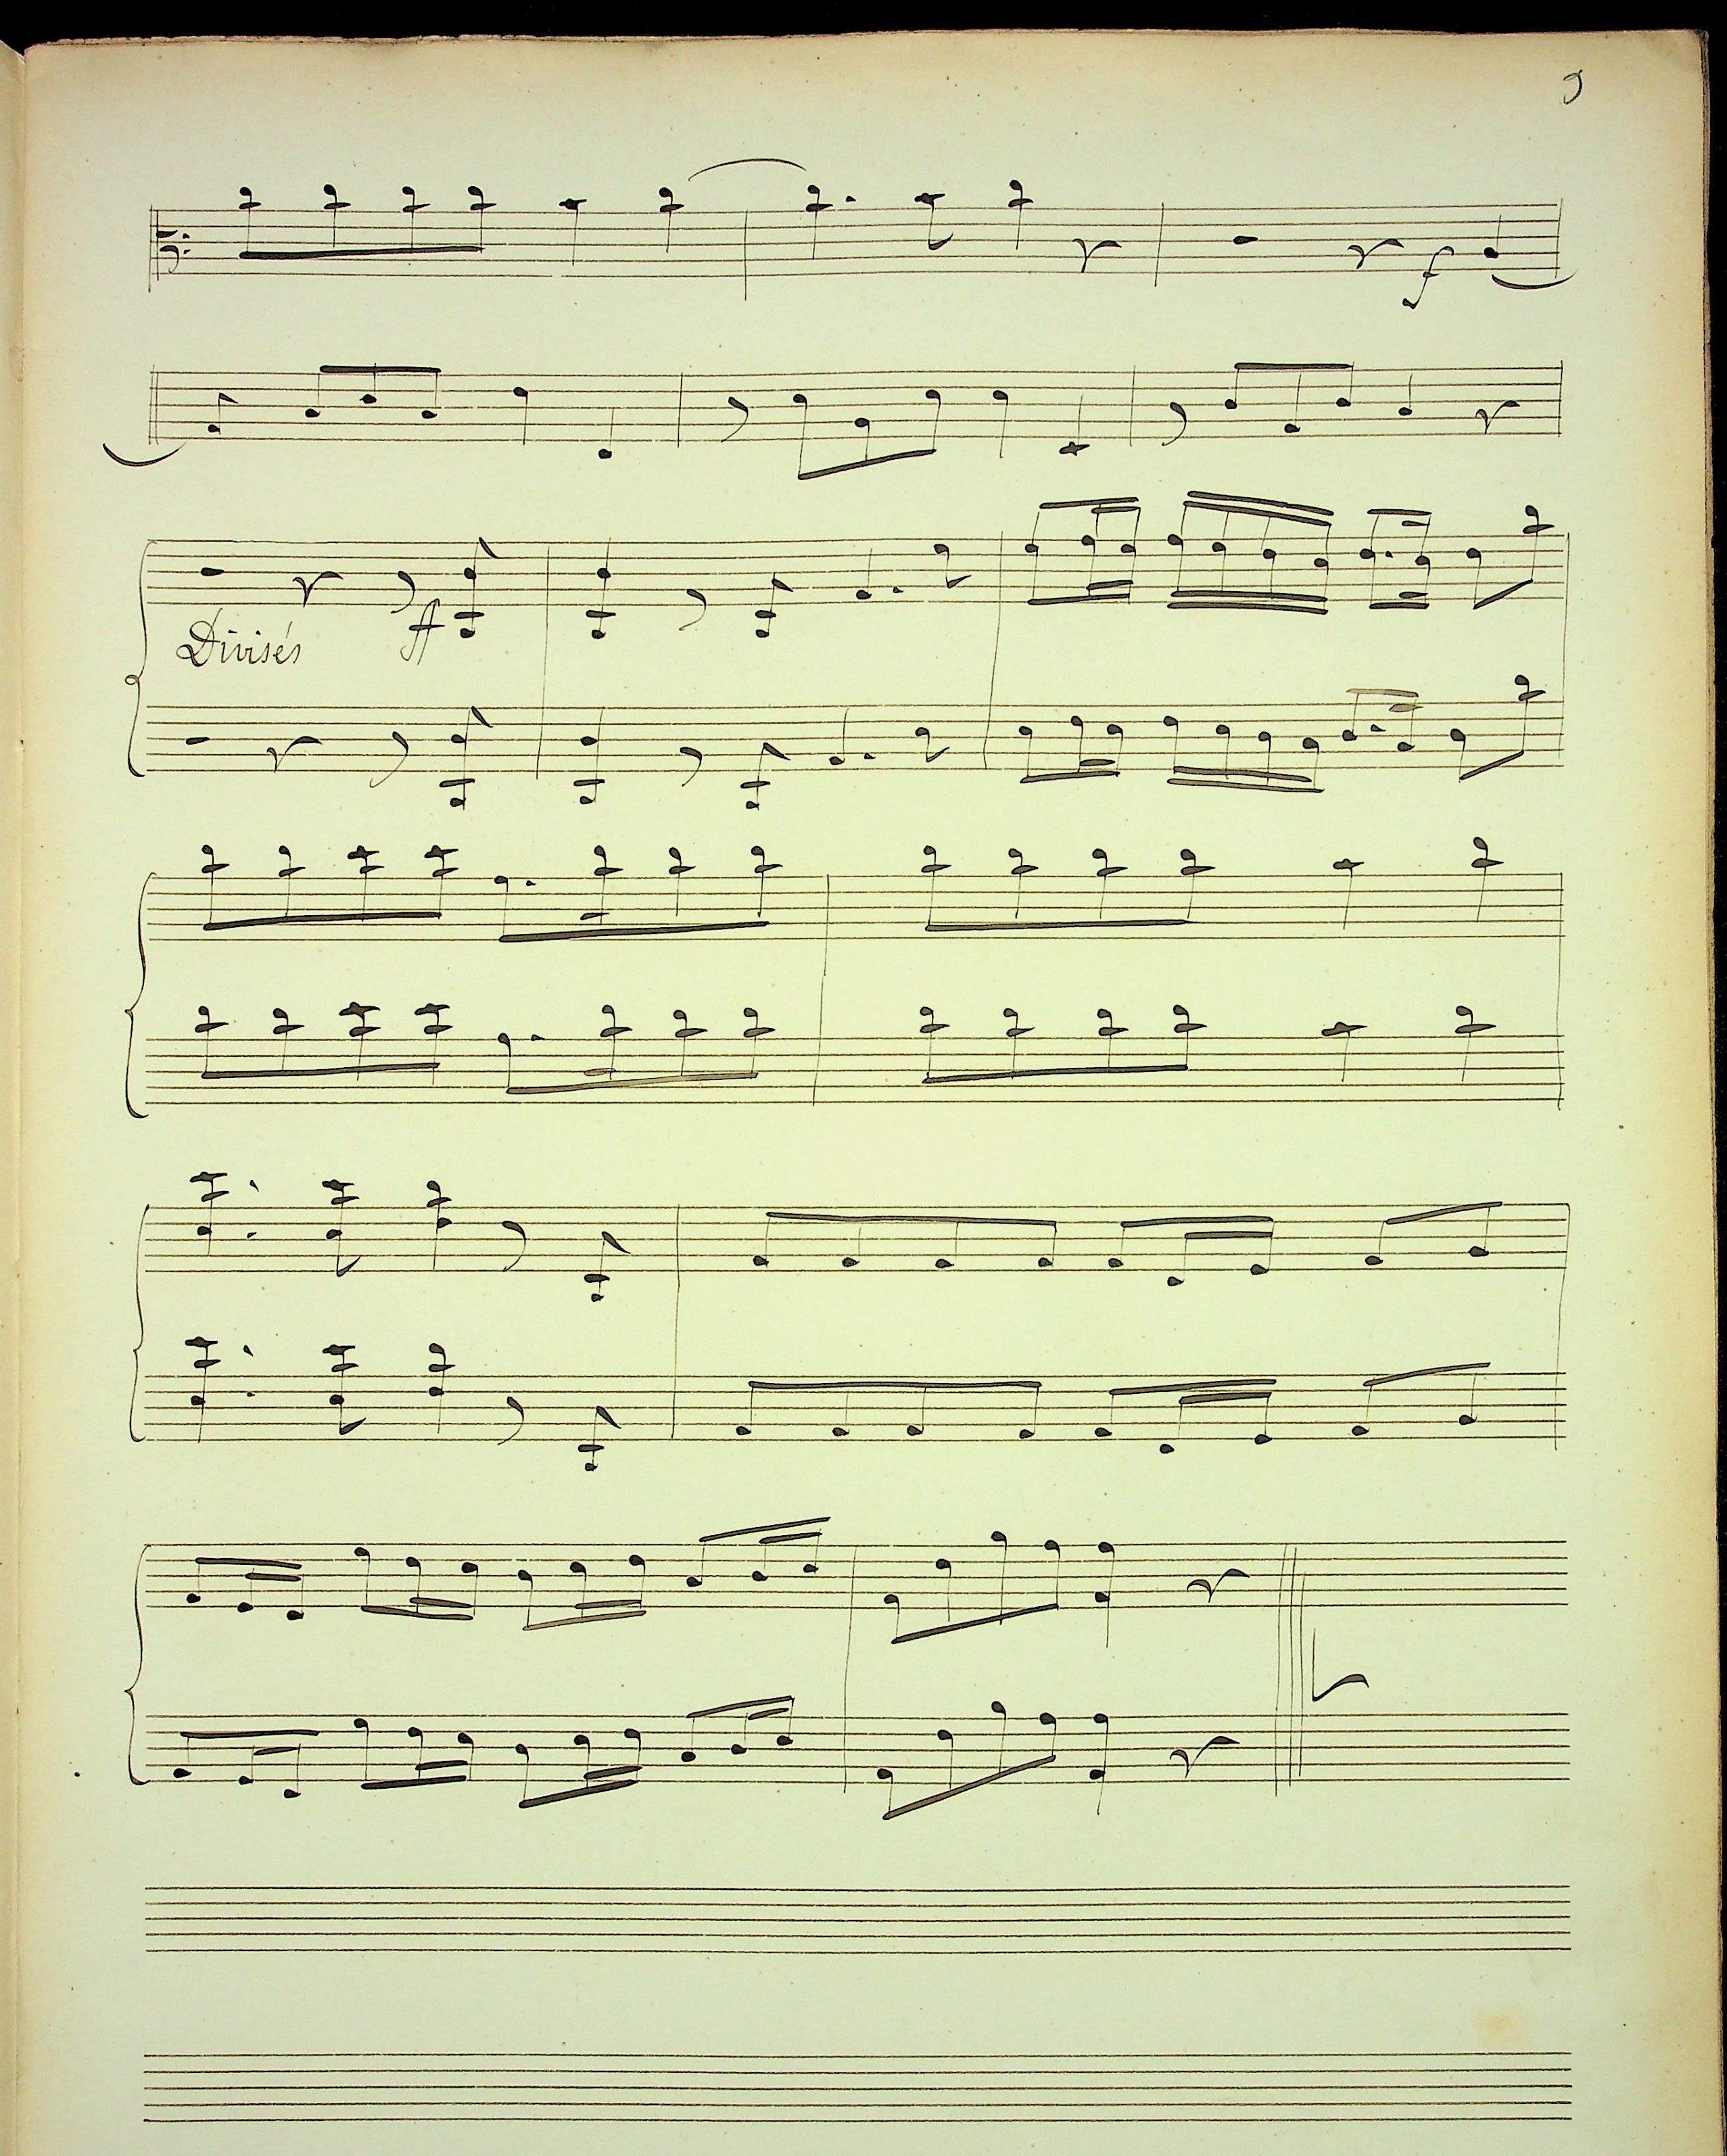 f
Divisés ff